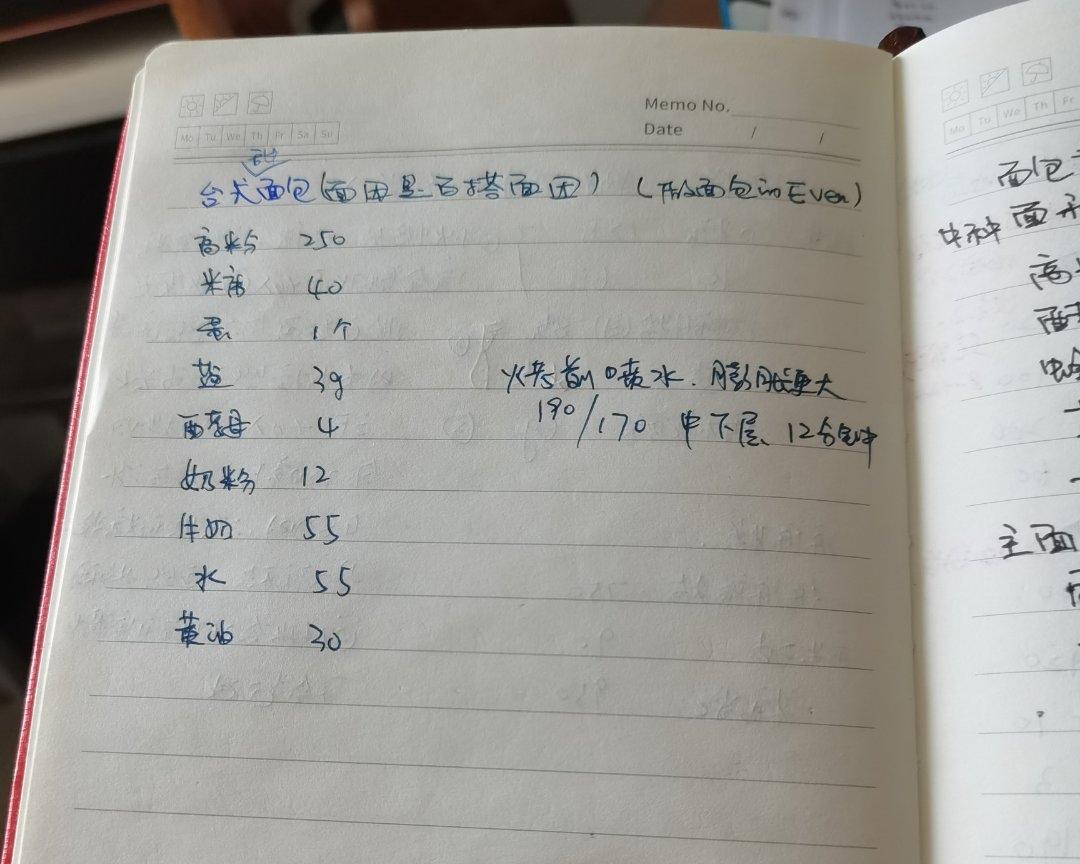 Memo No.
Date / /
Mo Tu We Th Fr Sa Su
台式面包(面团是百搭面团)(所有面包in Even)
高粉 250
米糖 40
蛋 1个
盐 3g
酵母 4
奶粉 12
牛奶 55
水 55
黄油 30
烤前喷水.膨胀更大
190/170 中下层、12分钟
Mo Tu We Th Fr
面包
中种面
高
酵
主面